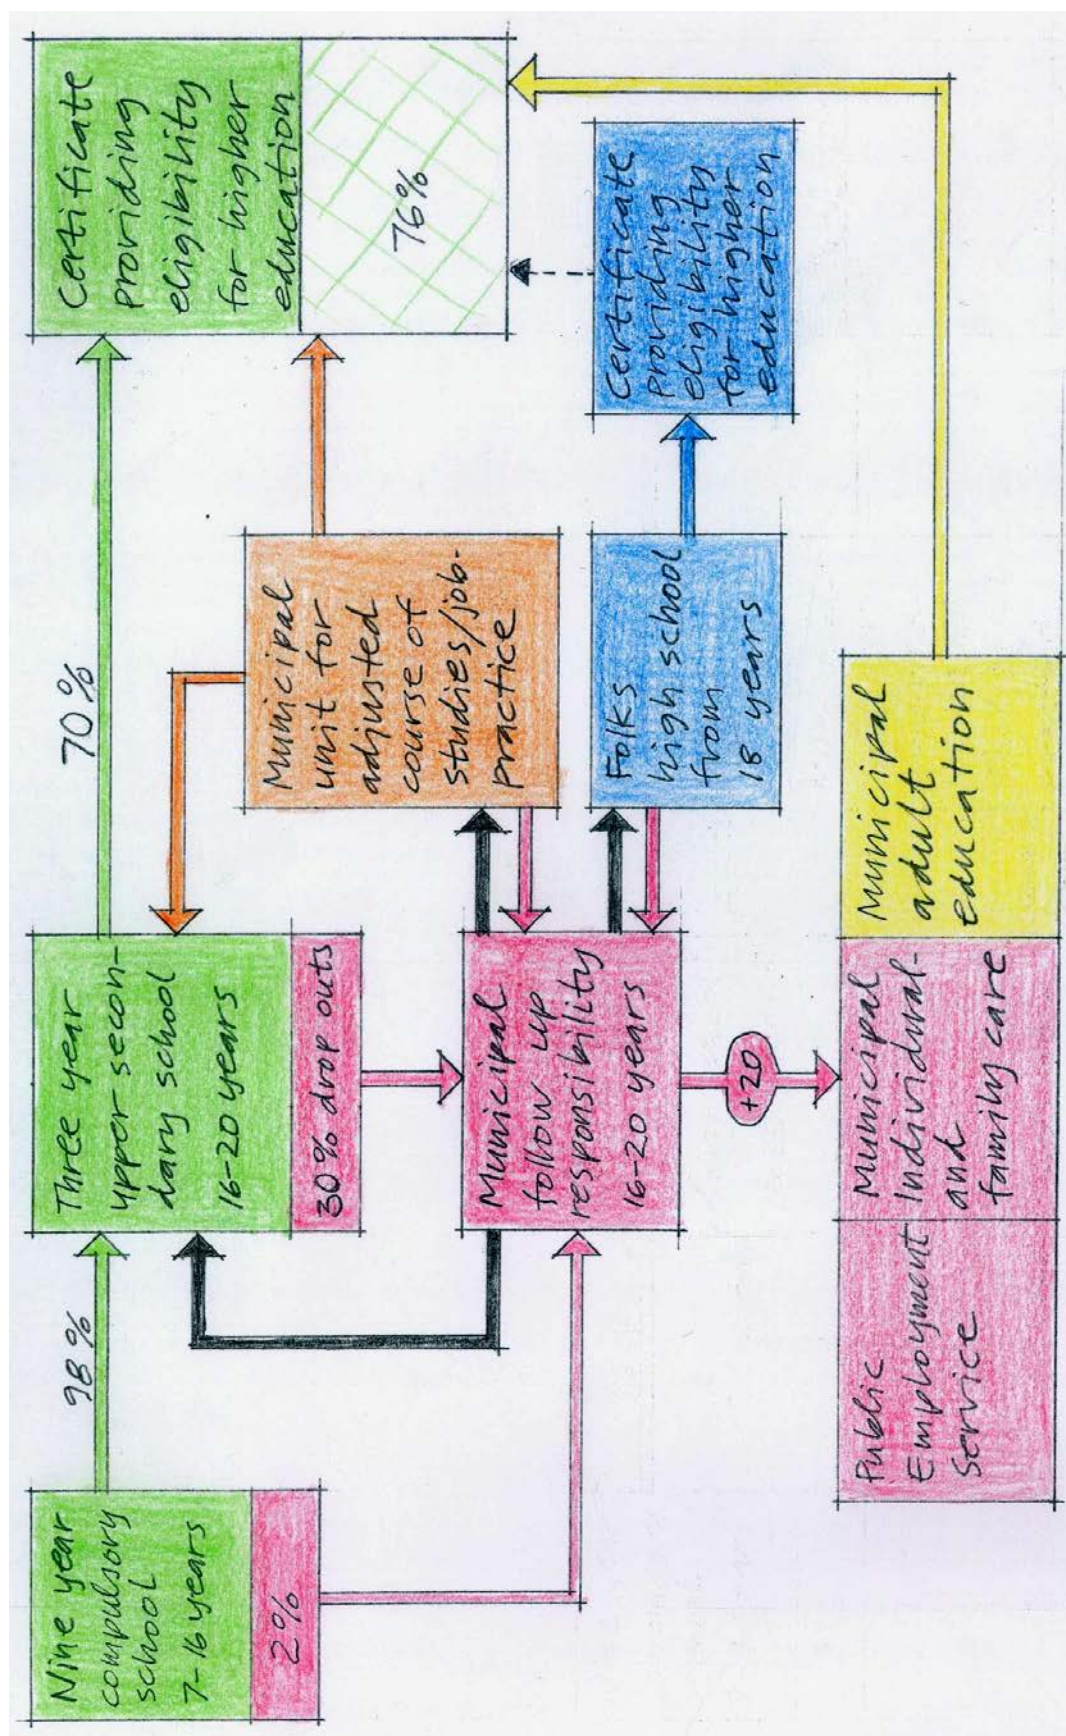 Nine year
compulsory
school
7-16 years
2%
98%
Three year
upper secon-
dary school
16-20 years
30% drop outs
70%
Certificate
providing
eligibility
for higher
education
76%
Municipal
unit for
adjusted
course of
studies/job-
practice
Municipal
follow up
responsibility
16-20 years
Folks
high school
from
18 years
Certificate
providing
eligibility
for higher
education
+20
Public
Employment
Service
Municipal
Individural-
and
family care
Municipal
adult
education